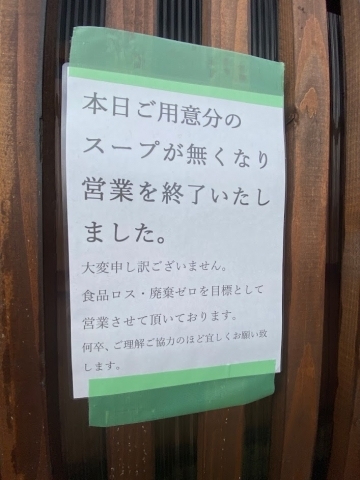 本日ご用意分の
スープが無くなり
営業を終了いたし
ました。
大変申し訳ございません。
食品ロス・廃棄ゼロを目標として
営業させて頂いております。
何卒、ご理解ご協力のほど宜しくお願い致
します。